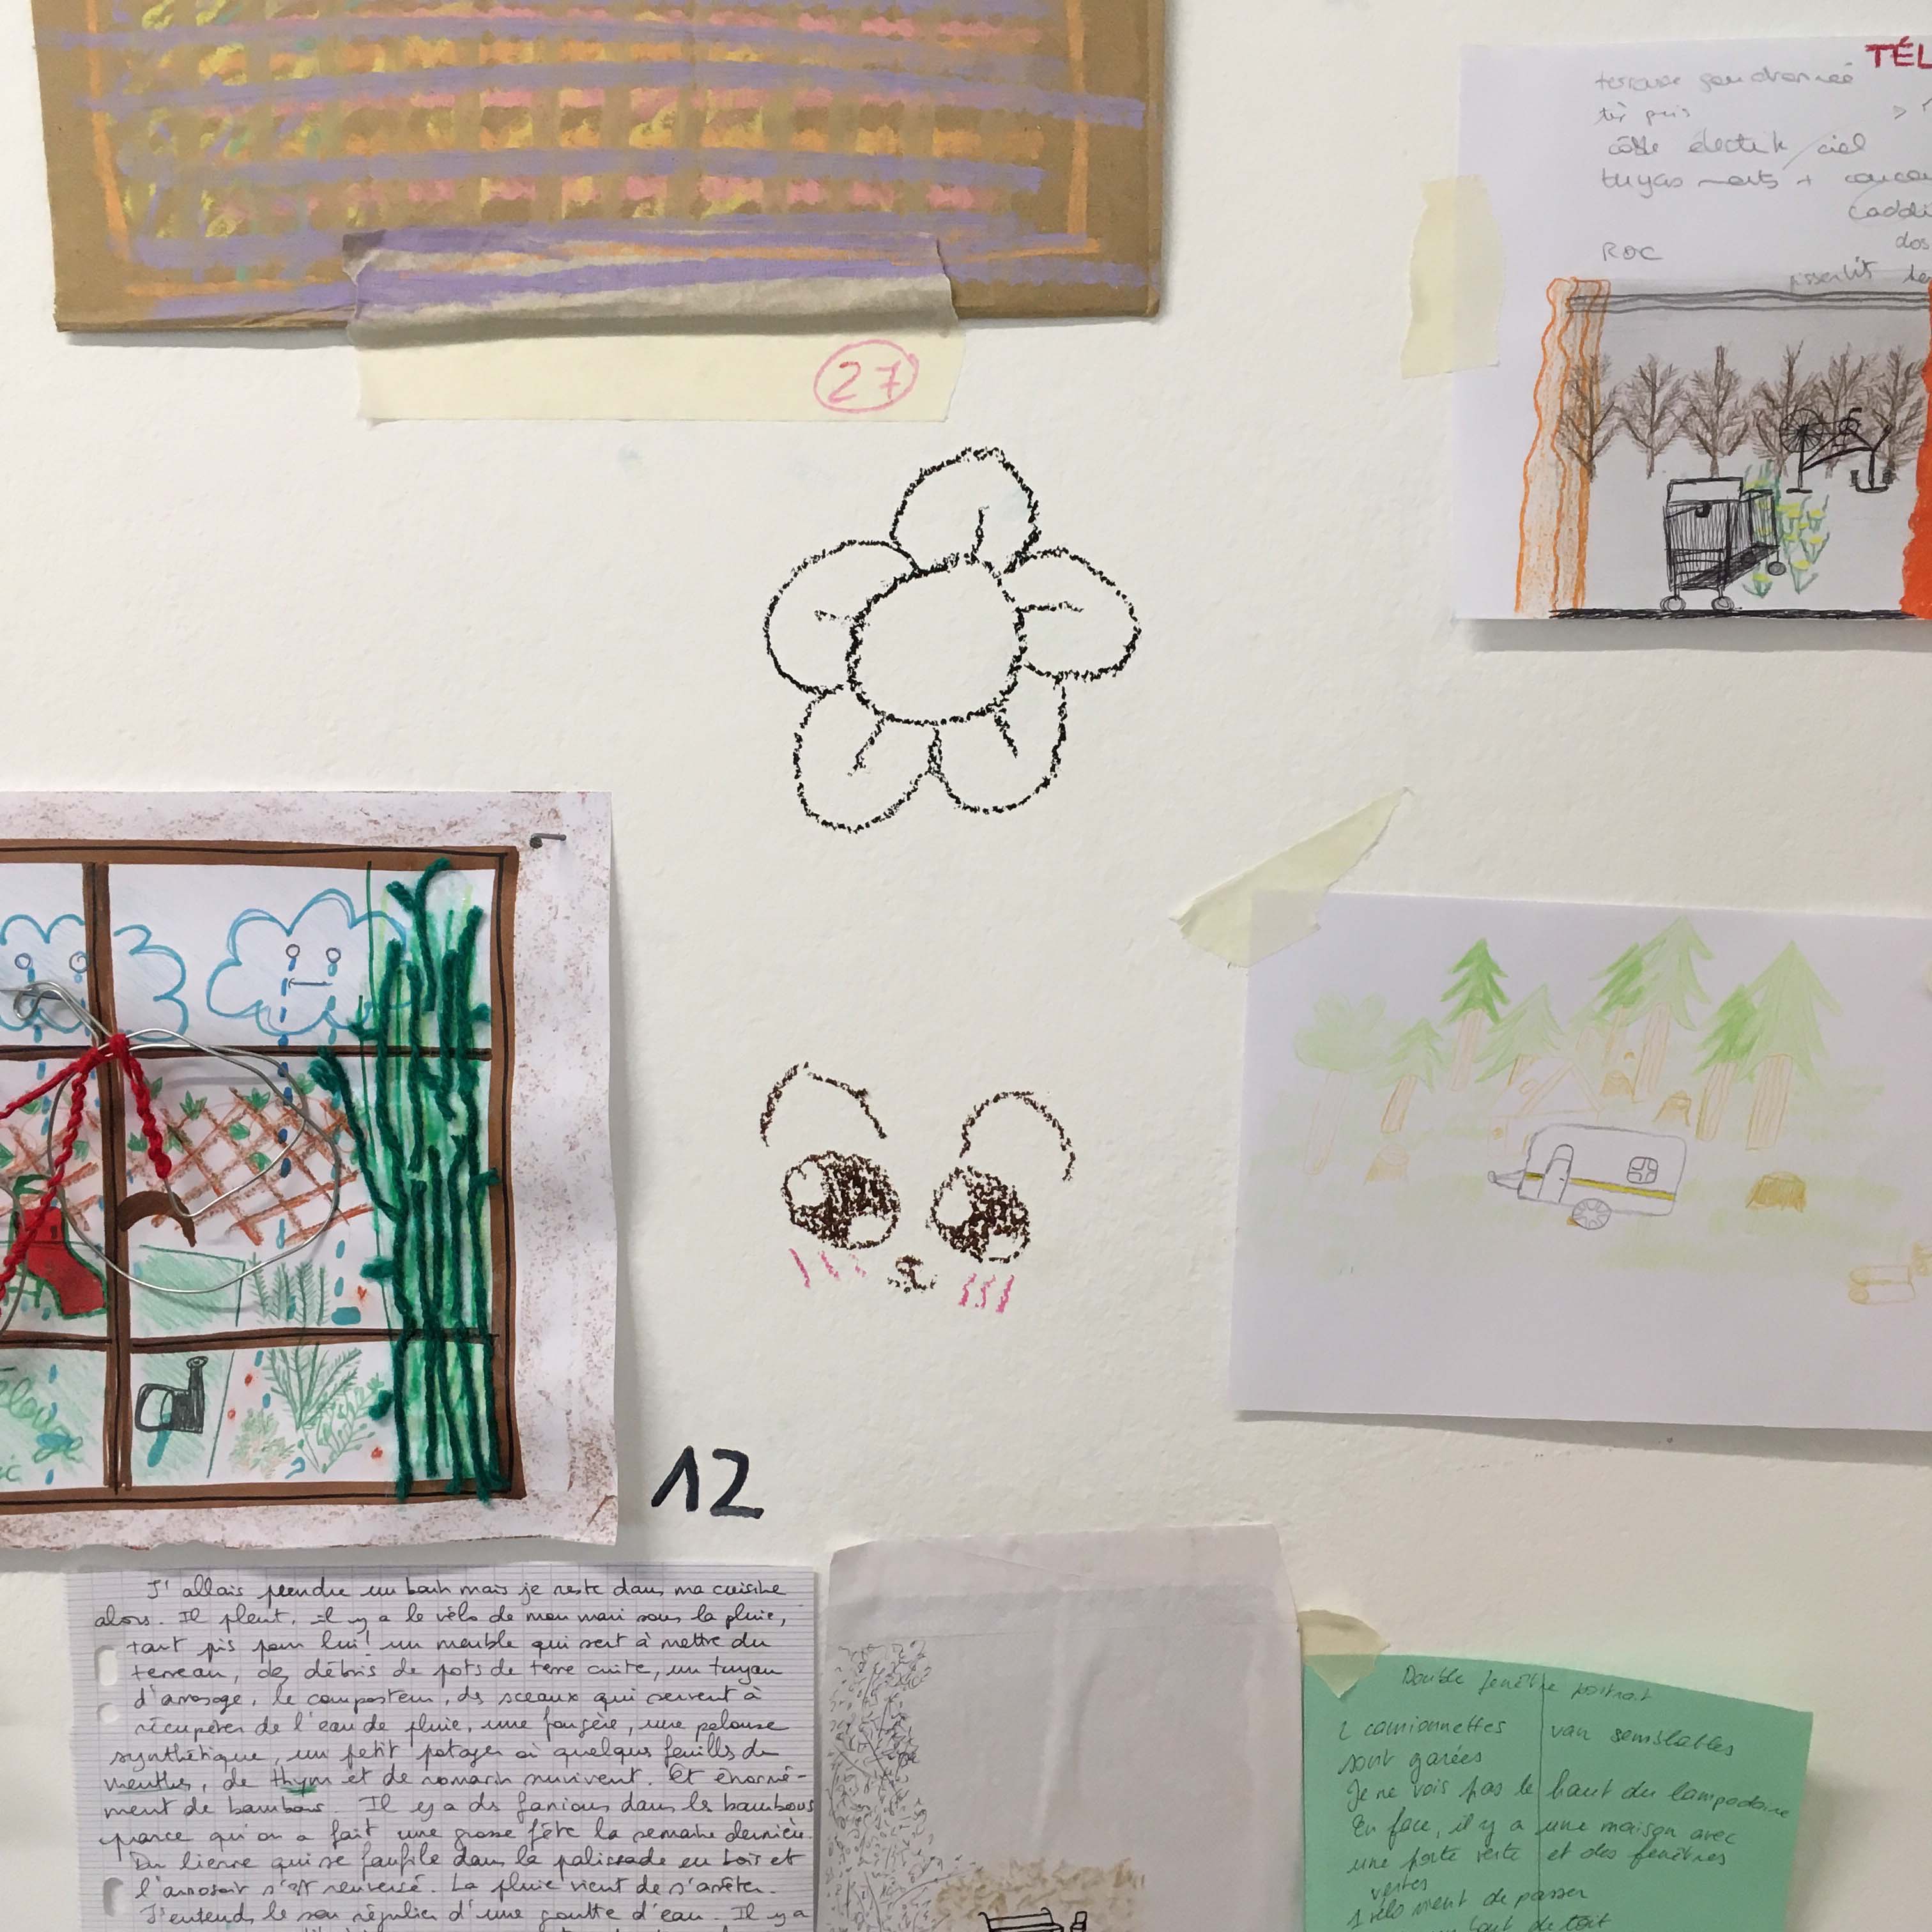 27
TÉL
terrasse goudronnée
côté électrik / ciel
tuyas morts +
ROC
12
J'allais prendre un bain mais je reste dans ma cuisine
alors. Il pleut. il y a le vélo de mon mari sous la pluie,
tant pis pour lui! un meuble qui sert à mettre du
terreau, des débris de pots de terre cuite, un tuyau
d'arrosage, le composteur, des sceaux qui servent à
récupérer de l'eau de pluie, une fougère, une pelouse
synthétique, un petit potager où quelques feuills de
menthes, de thym et de romarin survivent. Et énormé-
ment de bambous. Il y a ds fanions dans ls bambous
parce qu'on a fait une grosse fête la semaine dernière.
Du lierre qui se faufile dans la palissade en bois et
l'arrosoir s'est renversé. La pluie vient de s'arrêter.
J'entends le son régulier d'une goutte d'eau. Il y a
Double fenêtre portrait
2 camionnettes van semblables
sont garées
Je ne vois pas le haut du lampadaire
En face, il y a une maison avec
une porte verte et des fenêtres
vertes
1 vélo vient de passer